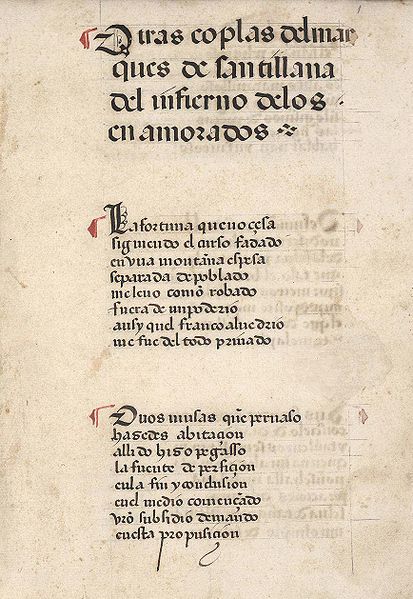 Otras coplas del mar
ques de santillana
del infierno delos
enamorados
La fortuna que no çesa
siguiendo el curso fadado
en vna montaña espesa
separada de poblado
me leuo comõ robado
fuera de mi poderio
ansy quel franco aluedrio
me fue del todo priuado
O vos musas quẽ pernaso
hagedes abitaçion
alli do hizo pegasso
la fuente de perfiçion
en la fin y conclusion
enel medio comẽçãdo
vr̃o subsidio demãdo
en esta proposiçion